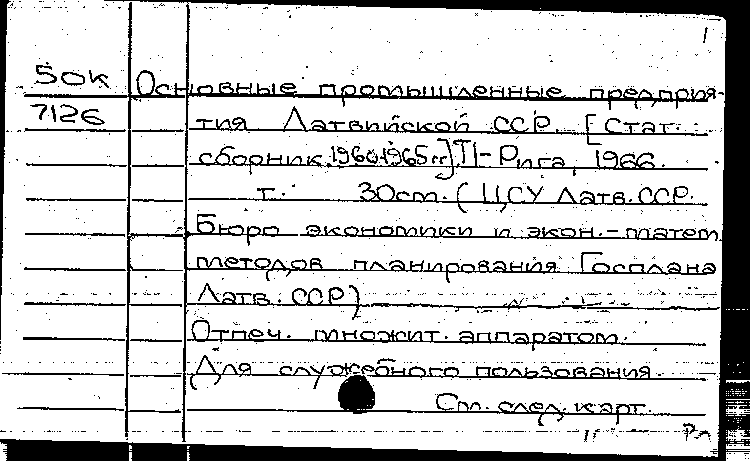 1
50к Основные промышленные предприя-
7126 тия Латвийской ССР. [Стат.
сборник. 1960-1965 гг.] Т1- Рига, 1966.
т. 30см. (ЦСУ Латв. ССР.
Бюро экономики и экон.-матем
методов планирования Госплана
Латв. ССР)
Отпеч. множит. аппаратом.
Для служебного пользования.
См. след. карт.